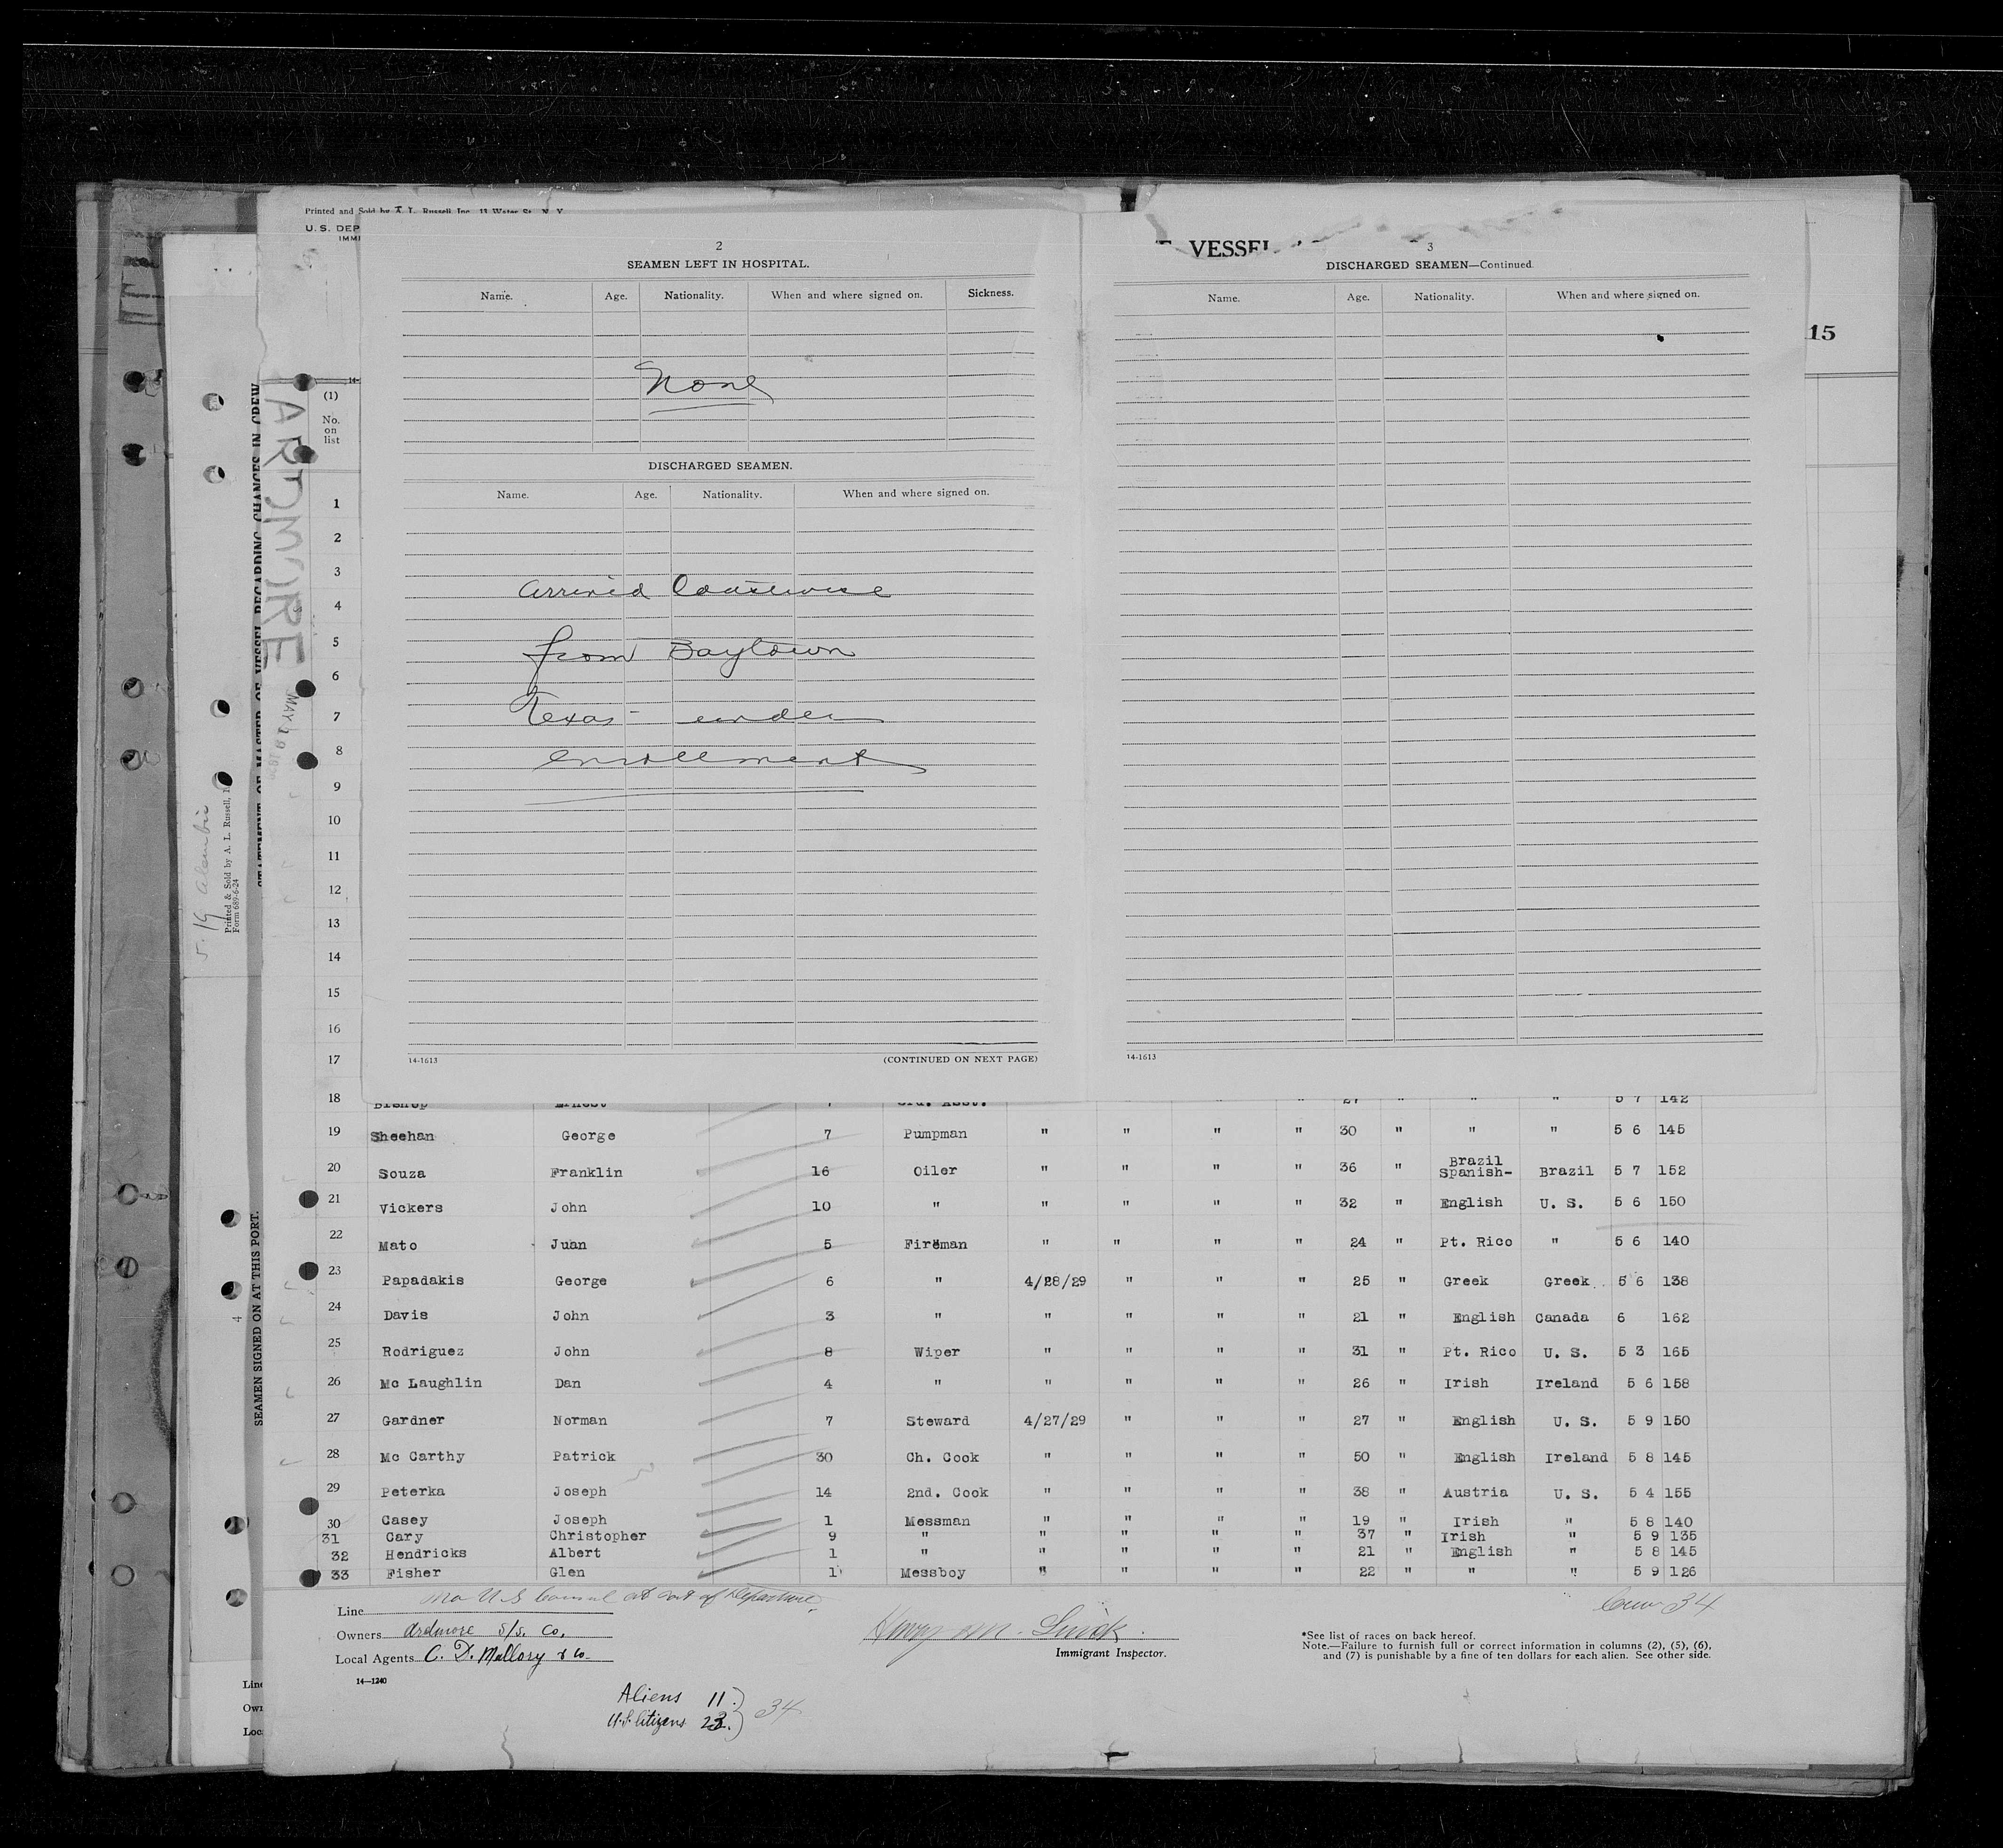 Printed and Sold by A. L. Russell Inc. 11 Water St. N. Y.
U. S. DEP
IMMI
VESSEL
15
2
SEAMEN LEFT IN HOSPITAL.
Name. Age. Nationality. When and where signed on. Sickness.
None
DISCHARGED SEAMEN.
Name. Age. Nationality. When and where signed on.
arrived Coastwise
from Baytown
Texas - under
enrollment
14-1613 (CONTINUED ON NEXT PAGE)
3
DISCHARGED SEAMEN—Continued.
Name. Age. Nationality. When and where signed on.
14-1613
STATEMENT OF MASTER OF VESSEL REGARDING CHANGES IN CREW
SEAMEN SIGNED ON AT THIS PORT.
ARDMORE
Printed & Sold by A. L. Russell,
Form 689-6-24
4
14-
(1)
No.
on
list
1
2
3
4
5
6
7
8
9
10
11
12
13
14
15
16
17
18 Bishop Ernest 7 3rd. Asst. " " " " 27 " " " 5 7 142
19 Sheehan George 7 Pumpman " " " " 30 " " " 5 6 145
20 Souza Franklin 16 Oiler " " " " 36 " Brazil Spanish- Brazil 5 7 152
21 Vickers John 10 " " " " " 32 " English U. S. 5 6 150
22 Mato Juan 5 Fireman " " " " 24 " Pt. Rico " 5 6 140
23 Papadakis George 6 " 4/28/29 " " " 25 " Greek Greek 5 6 138
24 Davis John 3 " " " " " 21 " English Canada 6 162
25 Rodriguez John 8 Wiper " " " " 31 " Pt. Rico U. S. 5 3 165
26 Mc Laughlin Dan 4 " " " " " 26 " Irish Ireland 5 6 158
27 Gardner Norman 7 Steward 4/27/29 " " " 27 " English U. S. 5 9 150
28 Mc Carthy Patrick 30 Ch. Cook " " " " 50 " English Ireland 5 8 145
29 Peterka Joseph 14 2nd. Cook " " " " 38 " Austria U. S. 5 4 155
30 Casey Joseph 1 Messman " " " " 19 " Irish " 5 8 140
31 Cary Christopher 9 " " " " " 37 " Irish " 5 9 135
32 Hendricks Albert 1 " " " " " 21 " English " 5 8 145
33 Fisher Glen 1 Messboy " " " " 22 " " " 5 9 126
No U S Consul at Port of Departure.
Crew 34
Line
Owners Ardmore S/S. Co.
Local Agents C. D. Mallory & Co.
14—1240
Immigrant Inspector.
*See list of races on back hereof.
Note.—Failure to furnish full or correct information in columns (2), (5), (6),
and (7) is punishable by a fine of ten dollars for each alien. See other side.
Aliens 11.
U.S. Citizens 23. } 34
Line
Own
Loc